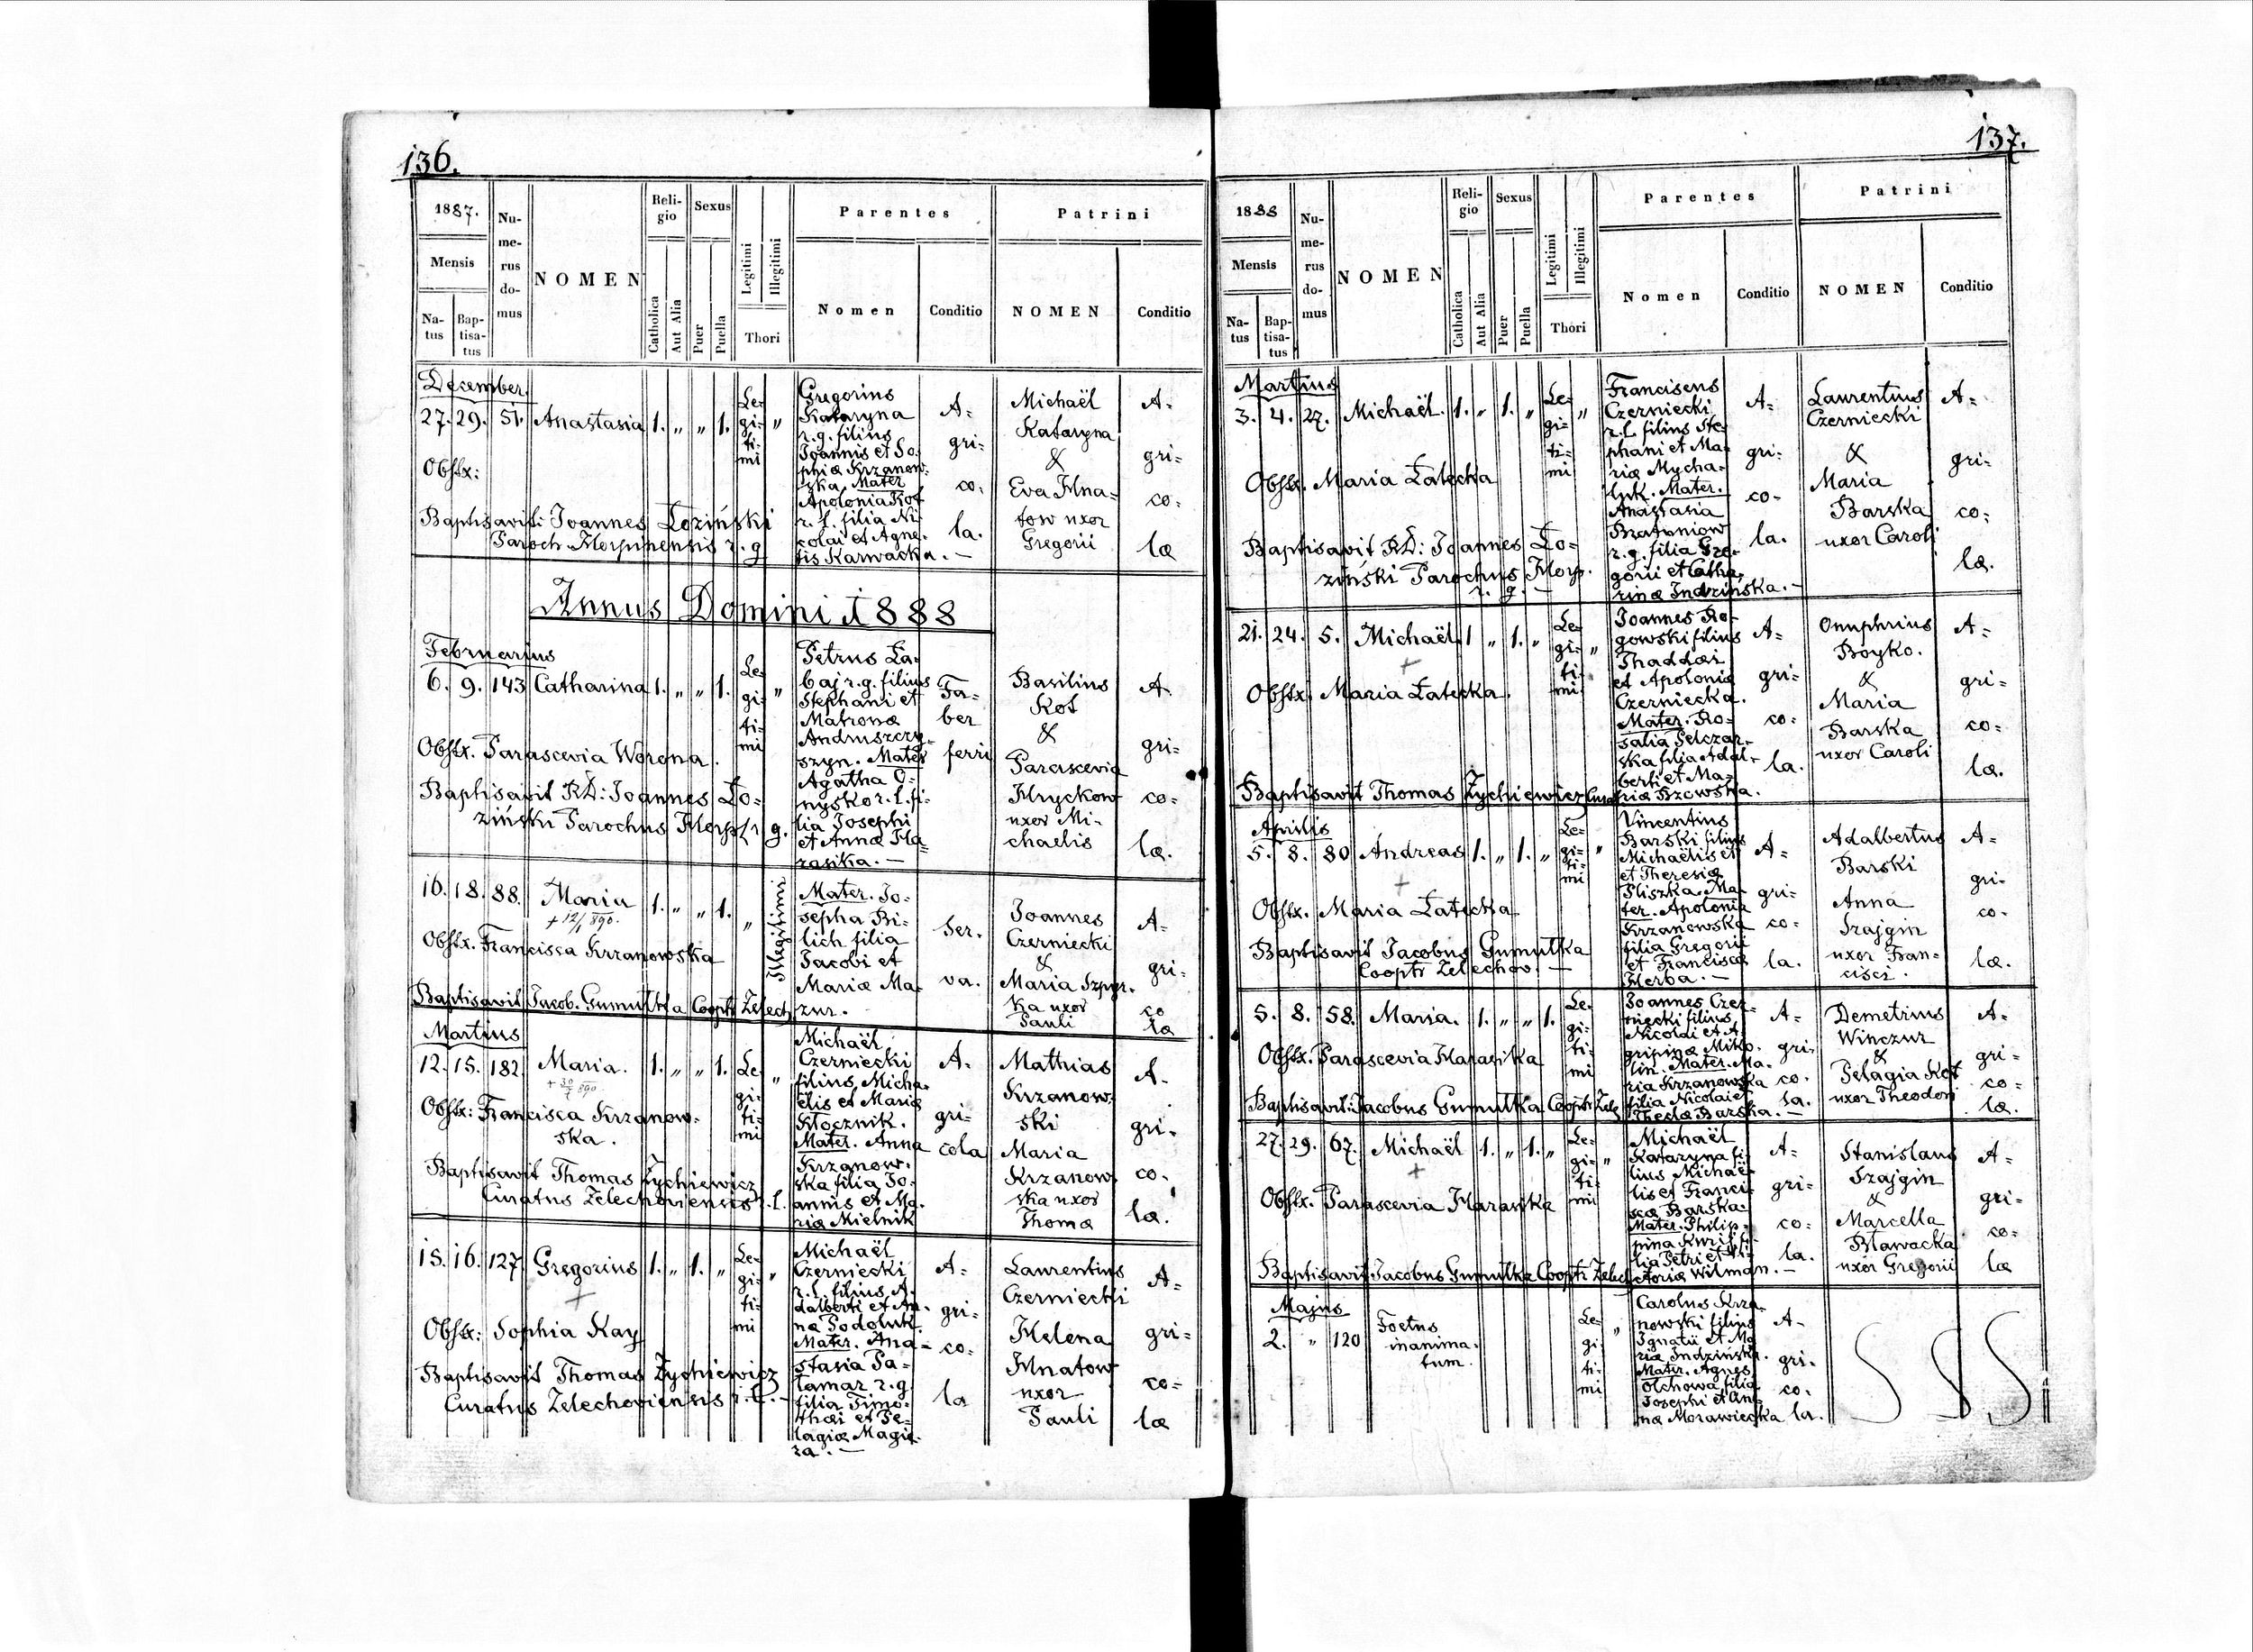 136.
1887.
Mensis
Na-
tus
Bap-
tisa-
tus
Nu-
me-
rus
do-
mus
NOMEN
Reli-
gio
Catholica
Aut Alia
Sexus
Puer
Puella
Legitimi
Illegitimi
Thori
Parentes
Nomen
Conditio
Patrini
NOMEN
Conditio
December
27. 29. 51. Anastasia 1. „ „ 1. Le=
gi=
ti=
mi „
Gregorius
Kataryna
r.g. filius
Joannis et So=
phiæ Krzanow=
ska. Mater
Apolonia Kot
r. l. filia Ni=
colai et Agne=
tis Karwacka. —
A=
gri=
co=
la.
Michaël
Kataryna
&
Eva Hna=
tow uxor
Gregorii
A=
gri=
co=
læ
Obstx:
Baptisavit: Joannes Łoziński
Paroch. Horpinensis r. g
Annus Domini 1888
Februarius
6. 9. 143 Catharina 1. „ „ 1. Le=
gi=
ti=
mi „
Petrus Ła=
baj r.g. filius
Stephani et
Matronæ
Andruszczy=
szyn. Mater
Agatha O=
nysko r. l. fi=
lia Josephi
et Annæ Ha=
rasika. —
Fa=
ber
ferri
Basilius
Kot
&
Parascevia
Hryckow
uxor Mi=
chaelis
A=
gri=
co=
læ.
Obstx. Parascevia Worona.
Baptisavit RD: Joannes Ło=
ziński Parochus Horp. r. g.
16. 18. 88. Maria 1. „ „ 1. „ Illegitimi
+ 12/1 890.
Mater. Jo=
sepha Bi=
lich filia
Jacobi et
Mariæ Ma=
zur.
Ser=
va.
Joannes
Czerniecki
&
Maria Szpyr=
ka uxor
Pauli
A=
gri=
co
læ
Obstx. Francisca Krzanowska
Baptisavit Jacob. Gumułka Cooptr Żelech
Martius
12. 15. 182 Maria. 1. „ „ 1. Le=
gi=
ti=
mi „
+ 30/7 890.
Michaël
Czerniecki
filius Micha=
ëlis et Mariæ
Kłocznik.
Mater. Anna
Krzanow=
ska filia Jo=
annis et Ma=
riæ Mielnik
A=
gri=
cola
Mathias
Krzanow=
ski
Maria
Krzanow=
ska uxor
Thomæ
A=
gri=
co=
læ.
Obstx: Francisca Krzanow=
ska.
Baptisavit Thomas Żychiewicz
Curatus Żelechoviensis r. l.
15. 16. 127 Gregorius 1. „ 1. „ Le=
gi=
ti=
mi „
Michaël
Czerniecki
r. l. filius A=
dalberti et An=
næ Podoluk
Mater. Ana=
stasia Pa=
łamar r. g.
filia Timo=
thæi et Pe=
lagiæ Magie=
ra. —
A=
gri=
co=
la
Laurentius
Czerniecki
Helena
Hnatow
uxor
Pauli
A=
gri=
co=
læ
Obstx: Sophia Kay
Baptisavit Thomas Żychiewicz
Curatus Żelechoviensis r. l. —
137.
1888
Mensis
Na-
tus
Bap-
tisa-
tus
Nu-
me-
rus
do-
mus
NOMEN
Reli-
gio
Catholica
Aut Alia
Sexus
Puer
Puella
Legitimi
Illegitimi
Thori
Parentes
Nomen
Conditio
Patrini
NOMEN
Conditio
Martius
3. 4. 27. Michaël. 1. „ 1. „ Le=
gi=
ti=
mi „
Franciscus
Czerniecki
r. l. filius Ste=
phani et Ma=
riæ Mycha=
luk. Mater.
Anastasia
Bratuniow
r. g. filia Gre=
gorii et Catha=
rinæ Indzińska. —
A=
gri=
co=
la.
Laurentius
Czerniecki
&
Maria
Barska
uxor Caroli
A=
gri=
co=
læ.
Obstx. Maria Łatecka
Baptisavit RD: Joannes Ło=
ziński Parochus Horp.
r. g. —
21. 24. 5. Michaël 1 „ 1. „ Le=
gi=
ti=
mi „
Joannes Ro=
gowski filius
Thaddæi
et Apoloniæ
Czerniecka.
Mater. Ro=
salia Pelczar=
ska filia Adal=
berti et Ma=
riæ Rzowska.
A=
gri=
co=
la.
Onuphrius
Boyko.
&
Maria
Barska
uxor Caroli
A=
gri=
co=
læ.
Obstx. Maria Łatecka.
Baptisavit Thomas Żychiewicz Curat
Aprilis
5. 8. 80 Andreas 1. „ 1. „ Le=
gi=
ti=
mi „
Vincentius
Barski filius
Michaëlis et
et Theresiæ
Pliszka. Ma=
ter. Apolonia
Krzanowska
filia Gregorii
et Franciscæ
Herba. —
A=
gri=
co=
la.
Adalbertus
Barski
Anna
Szajgin
uxor Fran=
cisci.
A=
gri=
co=
læ.
Obstx. Maria Łatecka
Baptisavit Jacobus Gumułka
Cooptr Żelechow. —
5. 8. 58. Maria. 1. „ „ 1. Le=
gi=
ti=
mi
Joannes Czer=
niecki filius
Nicolai et A=
gripinæ Miko=
lin. Mater. Ma=
ria Krzanowska
filia Nicolai et
Theclæ Barska. —
A=
gri=
co=
la.
Demetrius
Winczur
&
Pelagia Kot
uxor Theodori
A=
gri=
co=
læ.
Obstx. Parascevia Harasika
Baptisavit: Jacobus Gumułka Cooptr Żele
27. 29. 67. Michaël 1. „ 1. „ Le=
gi=
ti=
mi „
Michaël
Kataryna fi=
lius Michaë=
lis et Franci=
scæ Barska.
Mater. Philip=
pina Kuriś fi=
lia Petri et Vi=
ctoriæ Wilman. —
A=
gri=
co=
la.
Stanislaus
Szajgin
&
Marcella
Bławacka
uxor Gregorii
A=
gri=
co=
læ
Obstx. Parascevia Harasika
Baptisavit Jacobus Gumułka Cooptr Żelech
Majus
2. „ 120 Foetus
inanima=
tum.
Le=
gi=
ti=
mi „
Carolus Krza=
nowski filius
Ignatii et Ma=
riæ Indzińska.
Mater. Agnes
Olchowa filia
Josephi et An=
næ Morawiecka
A=
gri=
co=
la.